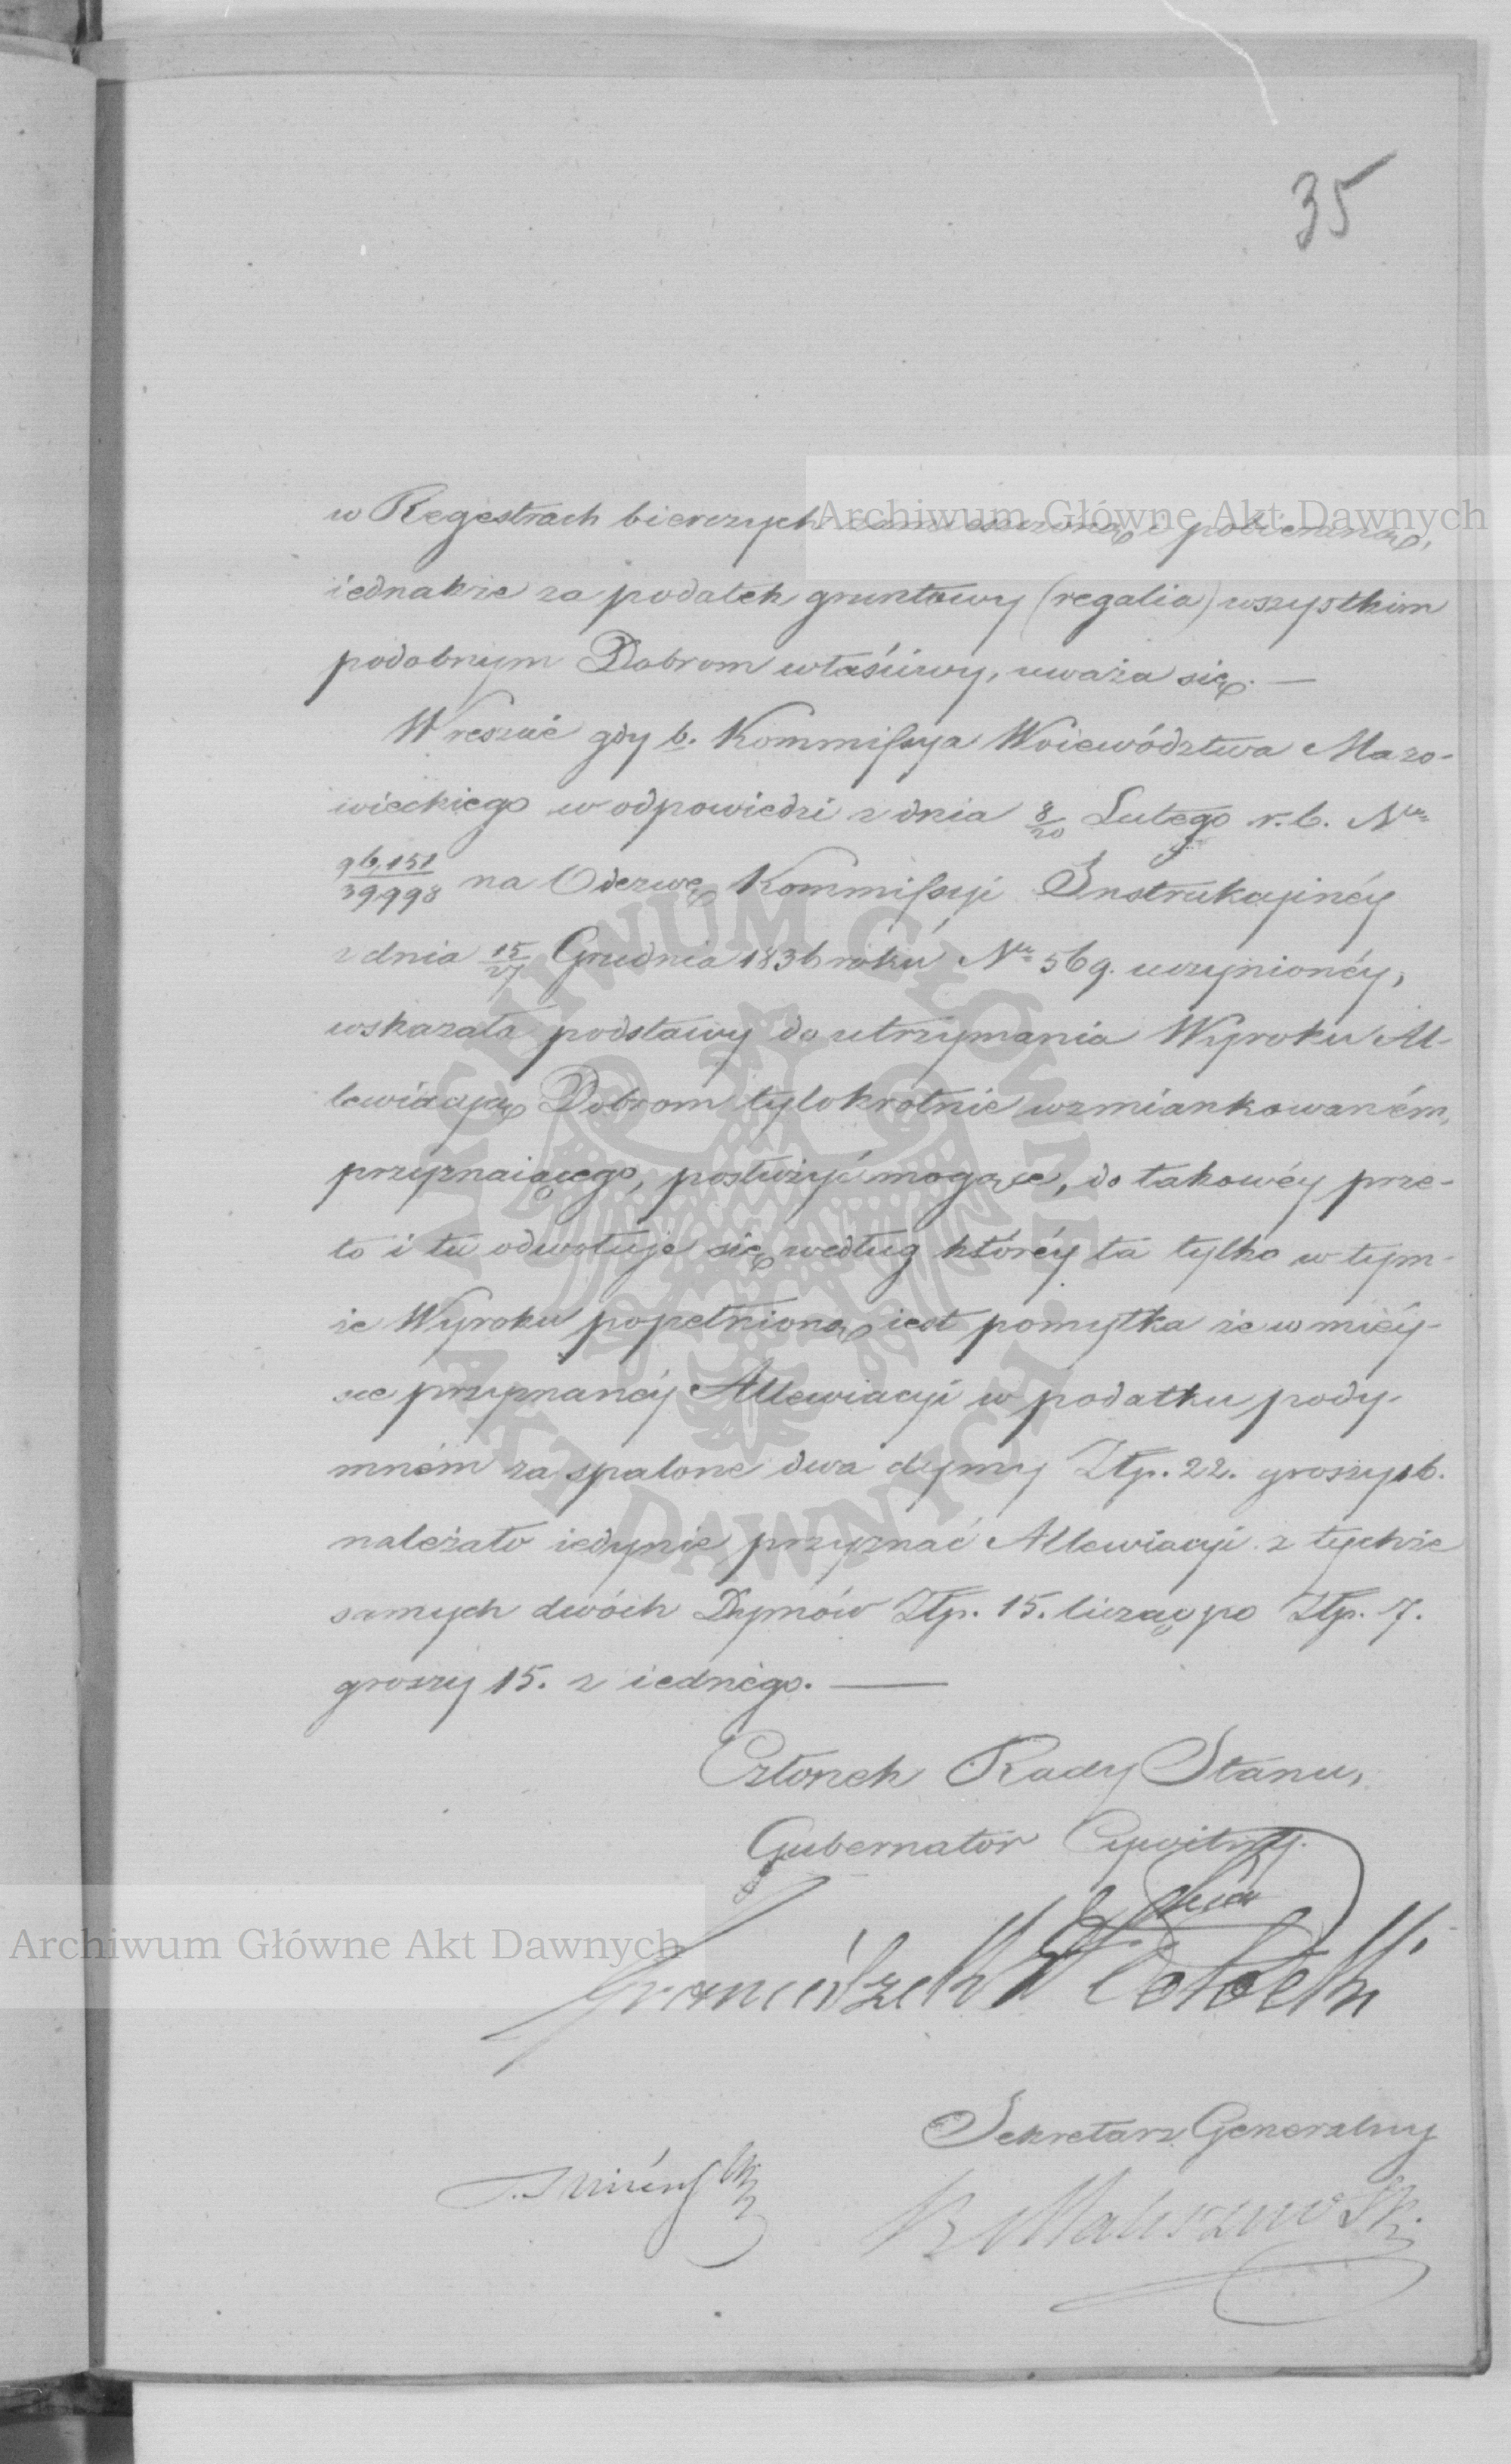 35
w Regestrach bierczych zamieszczoną i pobieraną,
Archiwum Główne Akt Dawnych
iednakże za podatek gruntowy (regalia) wszystkim
podobnym Dobrom właściwy, uważa się. —
Wreszcie gdy b. Kommissya Woiewództwa Mazo-
wieckiego w odpowiedzi z dnia 8/20 Lutego r. b. Nro
96,151/39998 na Odezwę Kommissyi Instrukcyinéy
z dnia 15/27 Grudnia 1836 roku Nro 569. uczynionéy,
wskazała podstawy do utrzymania Wyroku Al-
lewiacyą Dobrom tylokrotnie wzmiankowaném,
przyznaiącego, posłużyć mogące, do takowéy prze-
to i tu odwołuje się według któréy ta tylko w tym-
że Wyroku popełnioną iest pomyłka że w miéy-
sce przyznanéy Allewiacyi w podatku pody-
mném za spalone dwa dymy Złp. 22. groszy 16.
należało iedynie przyznać Allewiacyi z tychże
samych dwóch Dymów Złp. 15. licząc po Złp. 7.
groszy 15. z iednégo. —
ARCHIWUM GŁÓWNE AKT DAWNYCH.
Członek Rady Stanu,
Gubernator Cywilny.
Archiwum Główne Akt Dawnych
Franciszek Potocki
Sekretarz Generalny